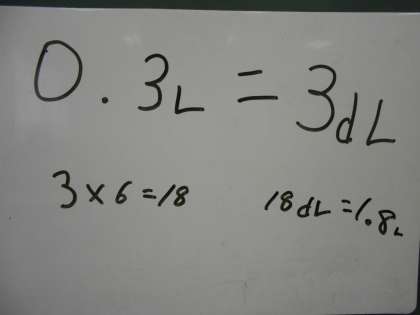 0.3L = 3dL
3 × 6 = 18 18dL = 1.8L